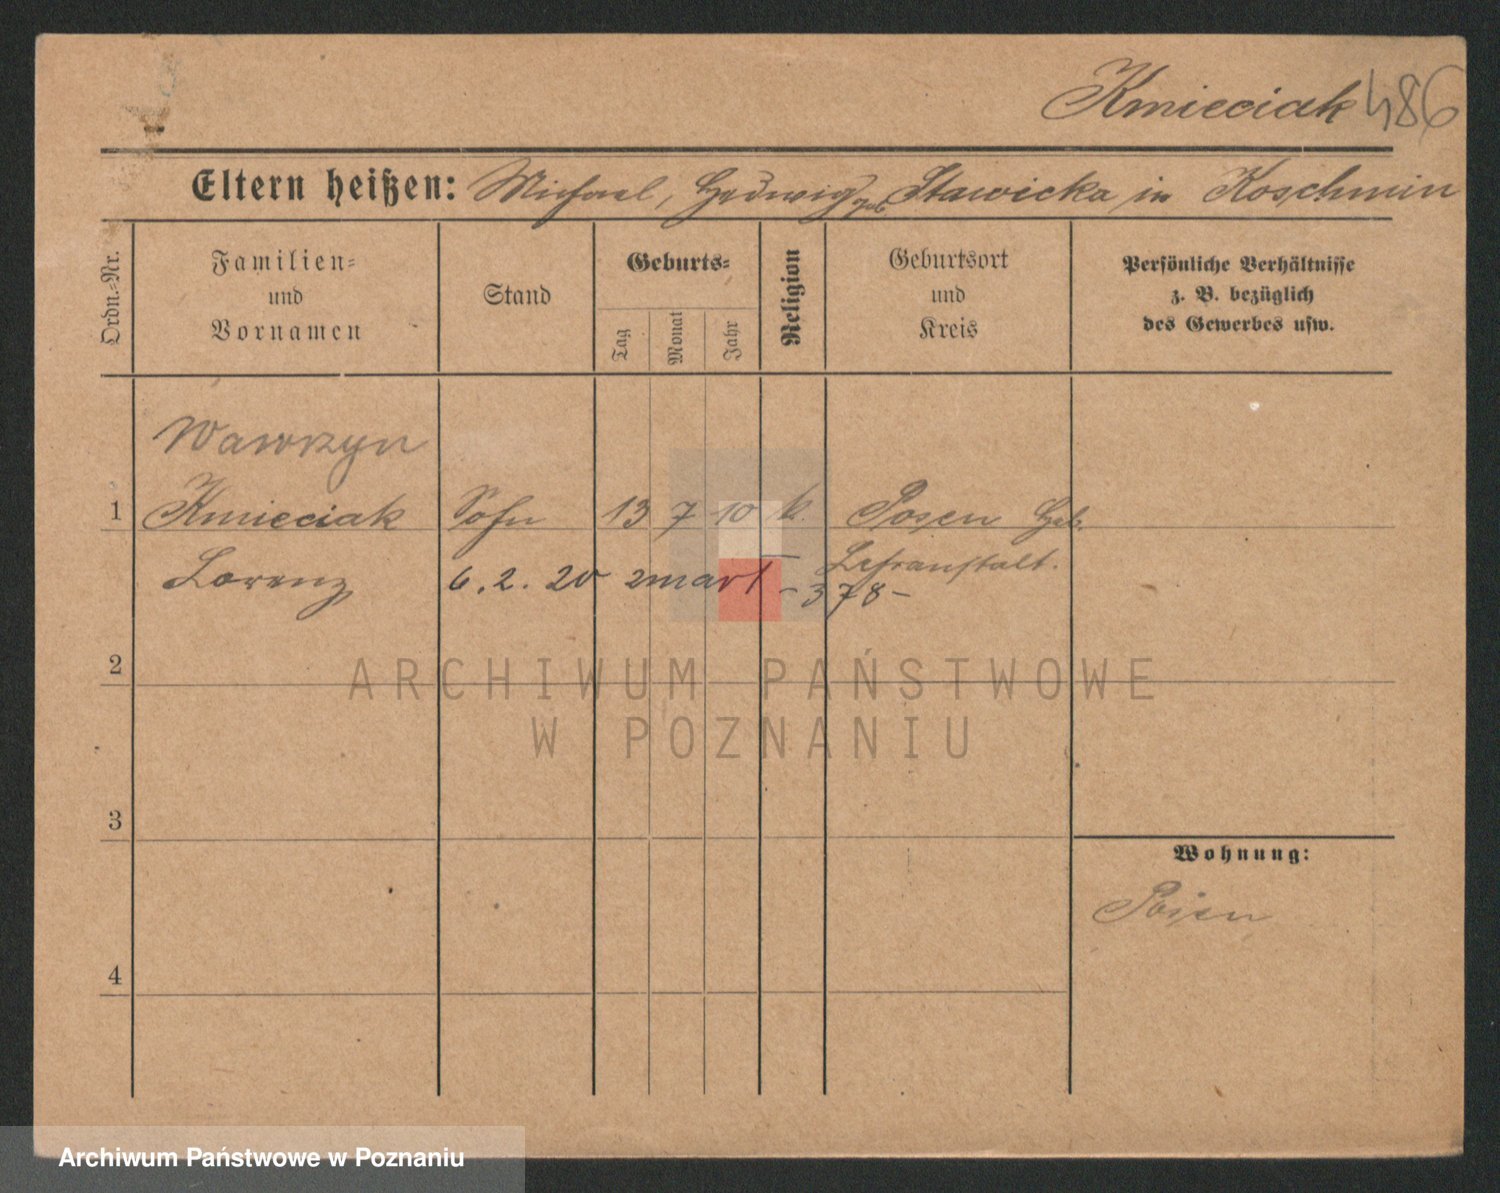 Kmieciak 486
Eltern heißen: Michael, Hedwig geb. Stawicka in Koschmin
Ordn.-Nr.
Familien-
und
Vornamen
Stand
Geburts-
Tag
Monat
Jahr
Religion
Geburtsort
und
Kreis
Persönliche Verhältnisse
z. B. bezüglich
des Gewerbes usw.
Wawrzyn
1 Kmieciak Sohn 13 7 10 k. Posen Heb.
Lorenz
Lehranstalt.
6. 2. 20 zmarł - 378 -
2
ARCHIWUM PAŃSTWOWE
W POZNANIU
3
Wohnung:
Posen
4
Archiwum Państwowe w Poznaniu